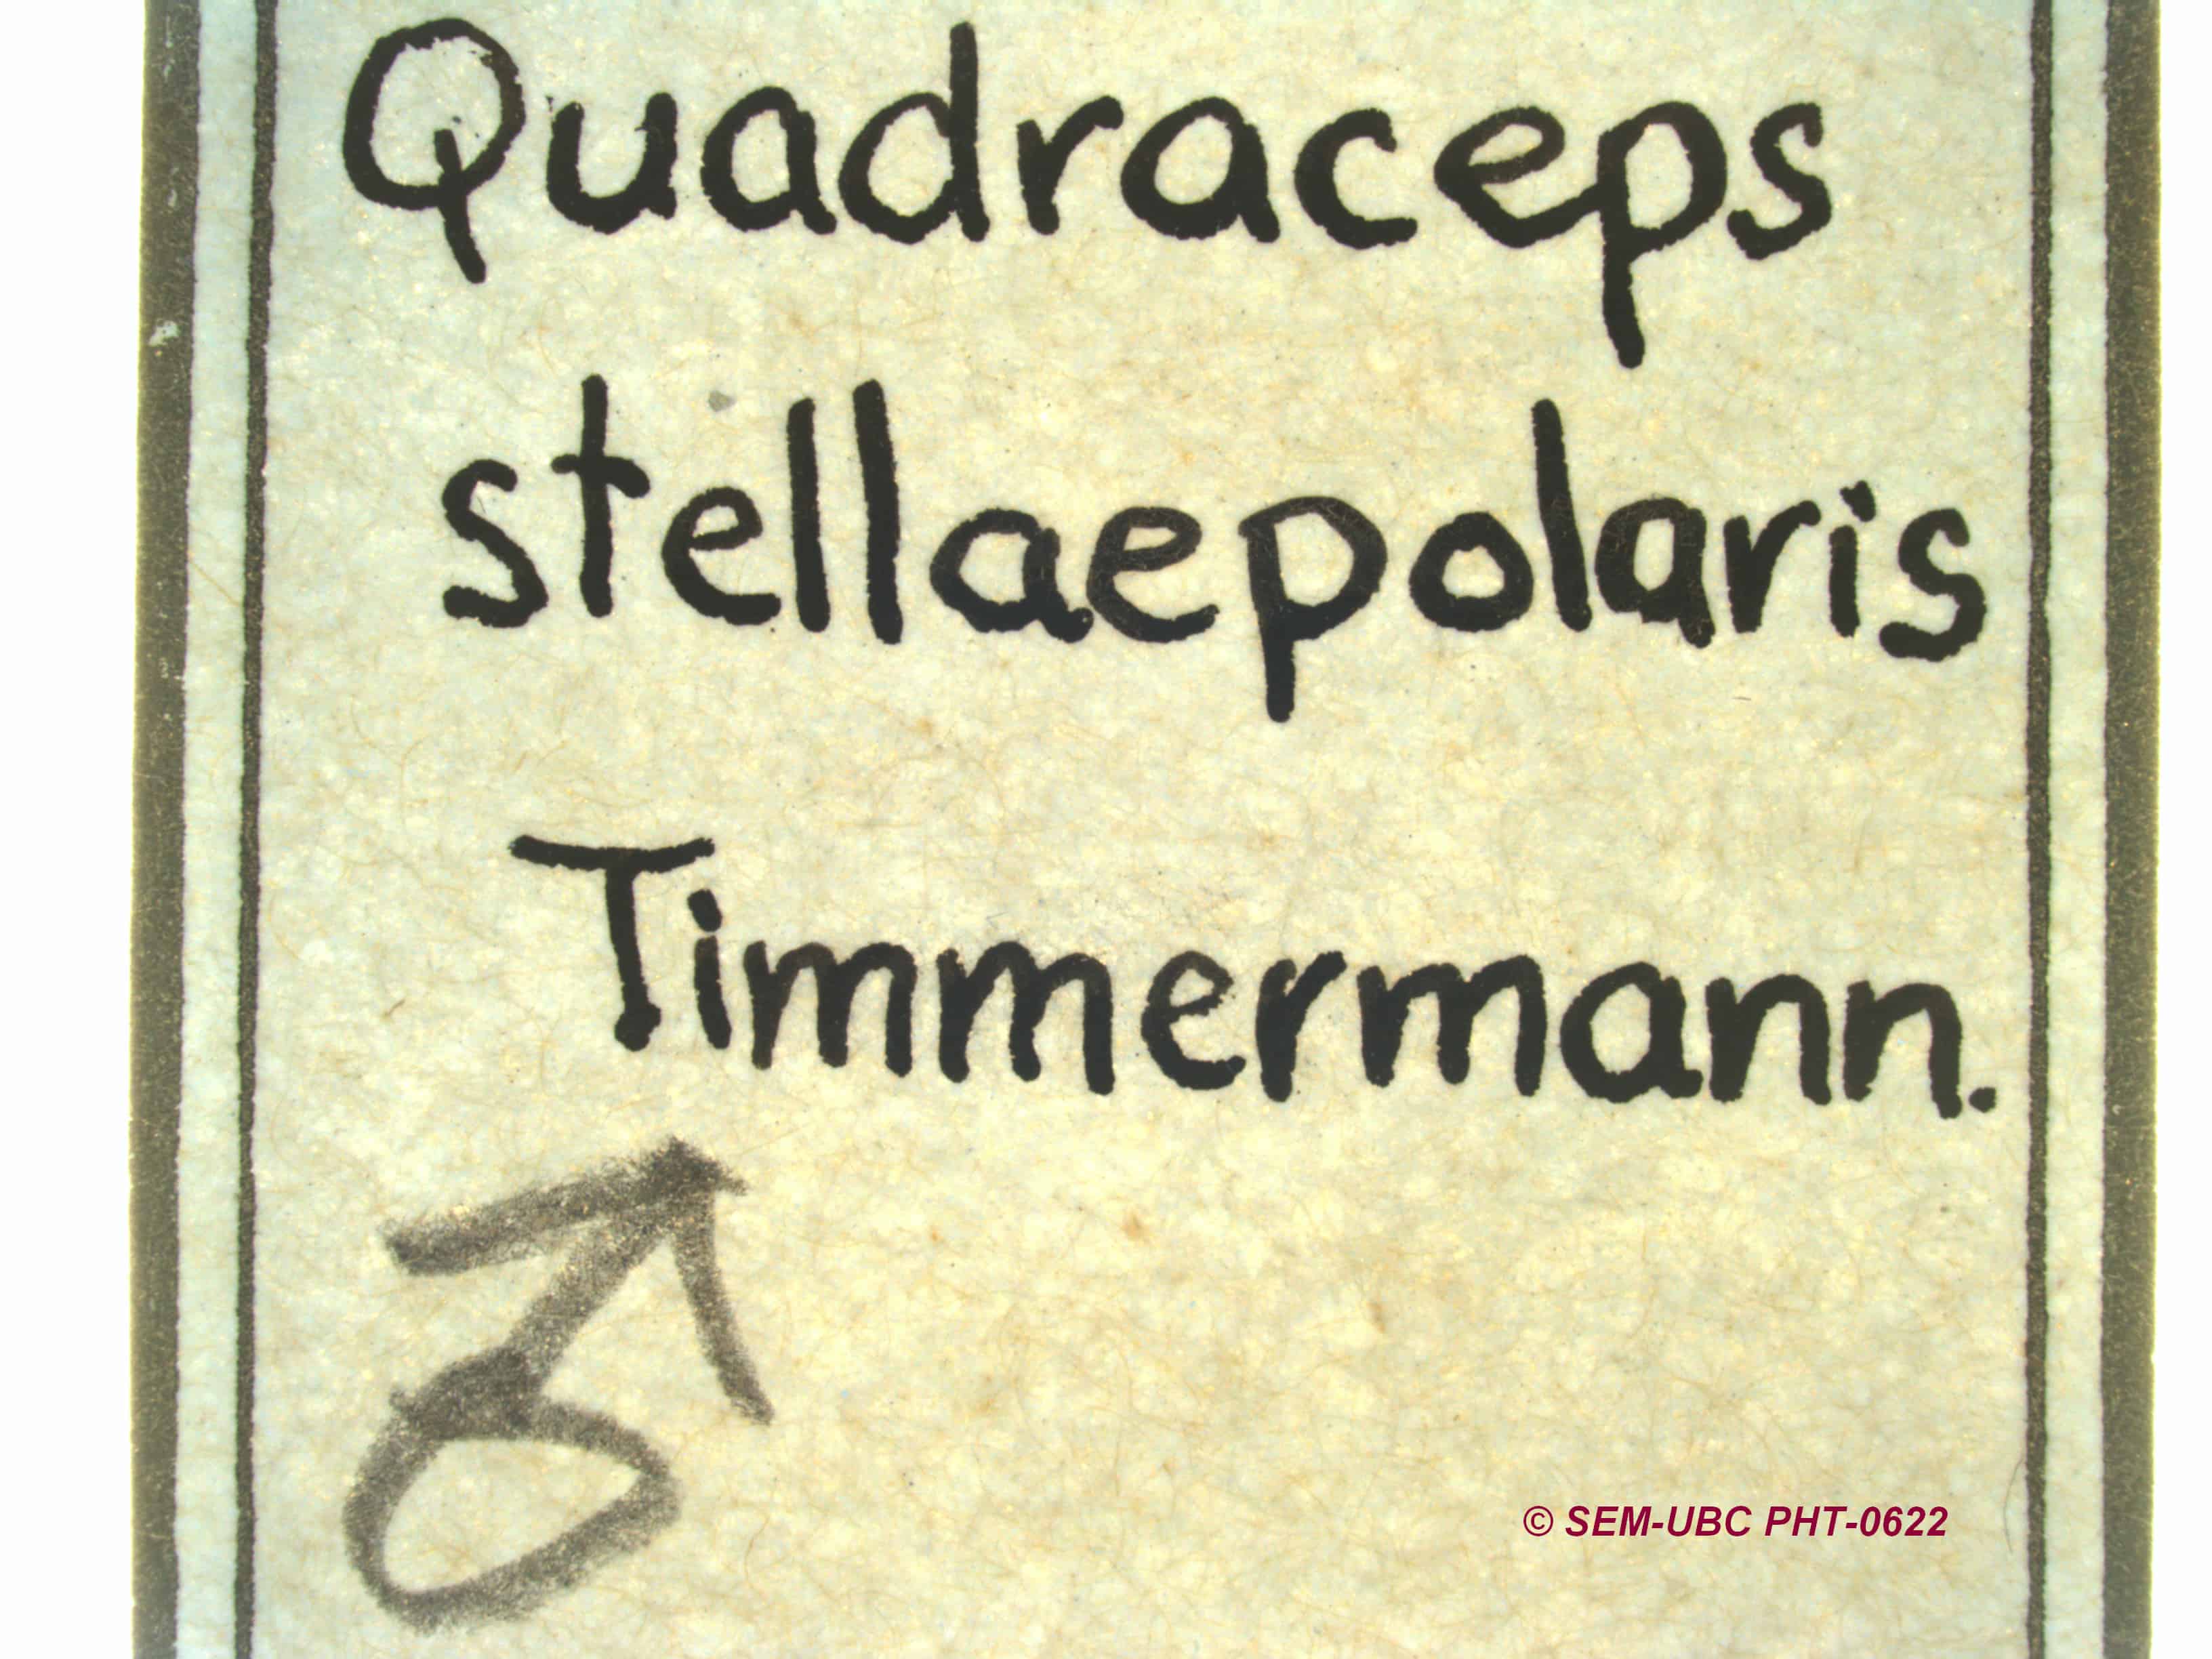 Quadraceps
stellaepolaris
Timmermann.
♂
© SEM-UBC PHT-0622